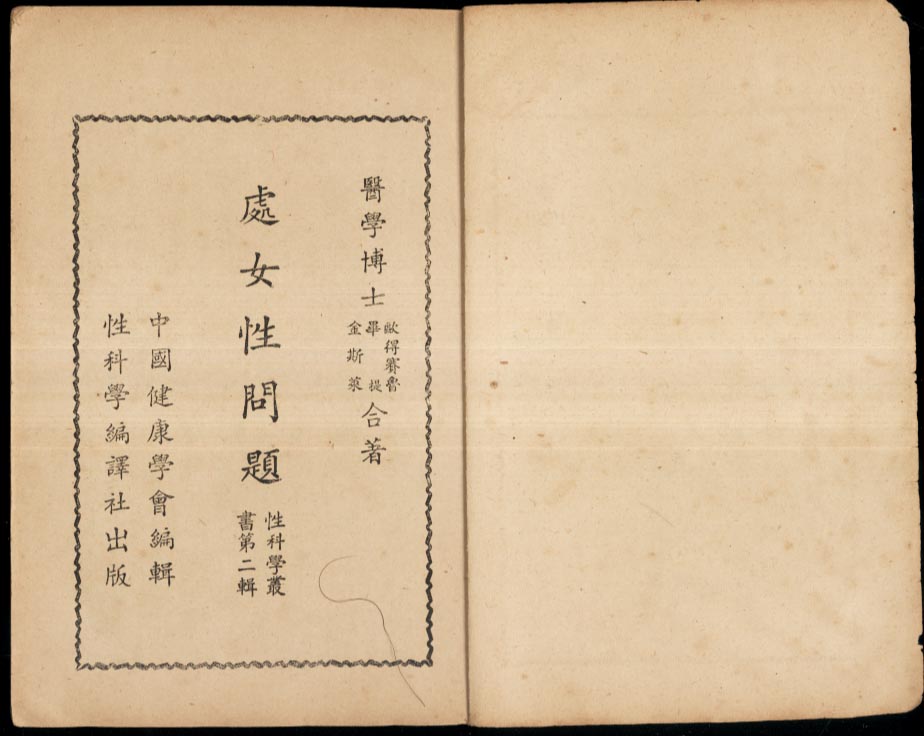 醫學博士
歐得賽魯
畢提
金斯萊
合著
處女性問題
性科學叢
書第二輯
中國健康學會編輯
性科學編譯社出版